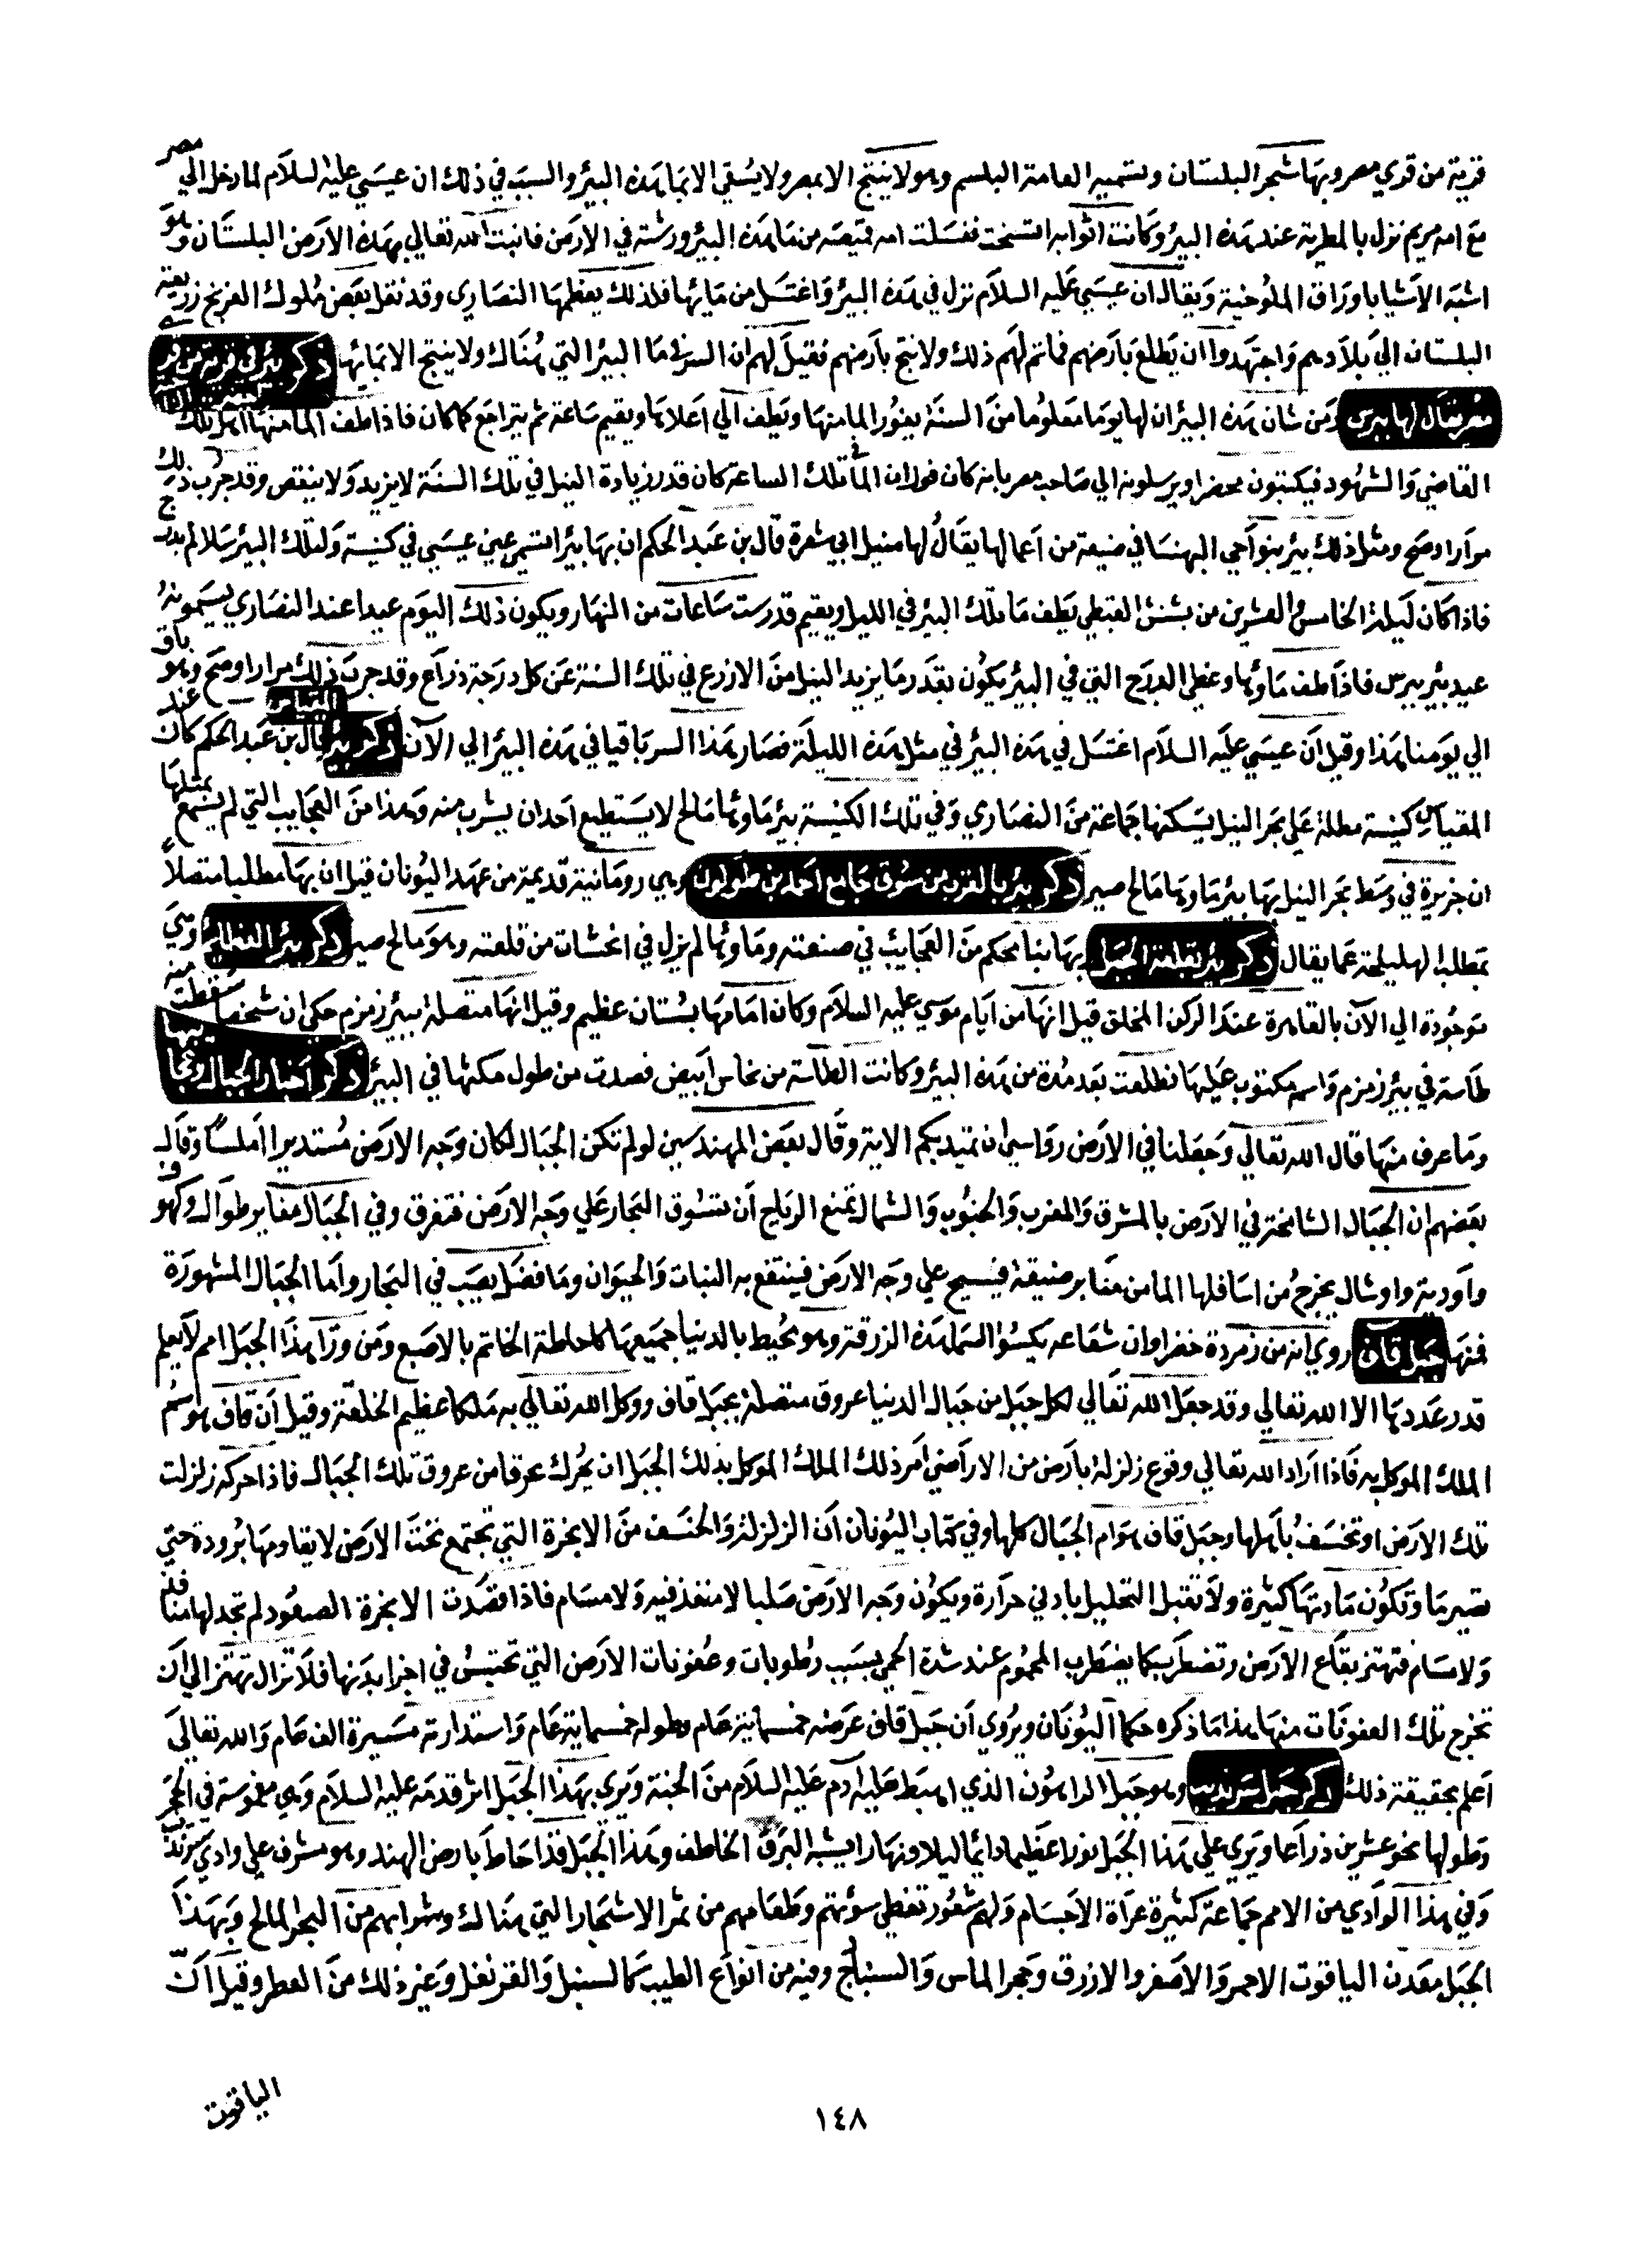 قرية من قري مصر وبها شجر البلسان وتسميه العامة البلسم وهو لا ينتج الا بمصر ولا يسقي الا بما هذه البير والسبب في ذلك ان عيسي عليه السلام لما دخل الي مصر
مع امه مريم نزل بالمطرية عند هذه البير وكانت اثوابه اتسخت فغسلت امه قميصه من ما هذه البير ورشته في الارض فانبت الله تعالي بهذه الارض البلستان وهو
اشبه الاشيا باوراق الملوخية ويقال ان عيسي عليه السلام نزل في هذه البير واغتسل من مايها فلذلك يعظمها النصاري وقد نقل بعض ملوك الفرنج زريعة
البلستان الي بلادهم واجتهدوا ان يطلع بارضهم فما تم لهم ذلك ولا نتج بارضهم فقيل لهم ان السر في ما البير التي هناك ولا ينتج الا بمائها ذكر بير في قرية من قري
مصر يقال لها بيرس ومن شان هذه البير ان لها يوما معلوما من السنة يفور الما منها ويطف الي اعلاها ويقيم ساعة ثم يتراجع كما كان فاذا طف الما منها تلك
القاضي والشهود فيكتبون محضرا ويرسلونه الي صاحب مصر بانه كان فوران الما في تلك الساعة كان قدر زيادة النيل في تلك السنة لا يزيد ولا ينقص وقد جرب ذلك
مرارا وصح ومثل ذلك بير بنواحي البهنسا في ضيعة من اعمالها يقال لها منيل ابي شعرة قال بن عبد الحكم ان بها بيرا تسمي عين عيسي في كنيسة ولتلك البير سلالم بدرج
فاذا كان ليلة الخامس والعشرين من بشنش القبطي يطف ما تلك البير في الليل ويقيم قدر ست ساعات من النهار ويكون ذلك اليوم عيدا عند النصاري يسمونه
عيد بير بيرس فاذا طف ماؤها وغطي الدرج التي في البير يكون بقدر ما يزيد النيل من الازرع في تلك السنة عن كل درجة ذراع وقد جرب ذلك مرارا وصح وهو باق
الي يومنا هذا وقيل ان عيسي عليه السلام اغتسل في هذه البير في مثل هذه الليلة فصار هذا السر باقيا في هذه البير الي الآن ذكر بير قال بن عبد الحكم كان عند
المقياس كنيسة مطلة علي بحر النيل يسكنها جماعة من النصاري وفي تلك الكنيسة بير ماوها مالح لا يستطيع احد ان يشرب منه وهذا من العجايب التي لم يسمع بمثلها
ان جزيرة في وسط بحر النيل بها بير ماوها مالح صير ذكر بير بالقرب من سوق جامع احمد بن طولون وهي رومانية قديمة من عهد اليونان قيل ان بها مطلبا متصلا
بمطلب لهليلجة عما يقال ذكر بير بقلعة الجبل بها بنا محكم من العجايب في صنعته وماؤها لم يزل في انحشات من قلعته وهو مالح صير ذكر بير العظام وهي
موجودة الي الآن بالقاهرة عند الركن المخلق قيل انها من ايام موسي عليه السلام وكان امامها بستان عظيم وقيل انها متصلة ببير زمزم حكي ان شخصا سقطت منه
طاسة في بير زمزم واسمه مكتوب عليها فطلعت بعد مدة من هذه البير وكانت الطاسة من نحاس ابيض فصدت من طول مكثها في البير ذكر اخبار الجبال وعجايبها
وما عرف منها قال الله تعالي وجعلنا في الارض رواسي ان تميد بكم الاية وقال بعض المهندسين لو لم تكن الجبال لكان وجه الارض مستديرا املسا وقال
بعضهم ان الجبال الشامخة في الارض بالمشرق والمغرب والجنوب والشمال تمنع الرياح ان تسوق البحار علي وجه الارض فتغرق وفي الجبال مغاير طوال وكهوف
واودية واوشال يخرج من اسافلها الما من منابر ضيقة فيسيح علي وجه الارض فينتفع به النبات والحيوان وما فضل يصب في البحار واما الجبال المشهورة
فمنها جبل قاف روي انه من زمردة خضرا وان شعاعه يكسوا السما هذه الزرقة وهو محيط بالدنيا جميعها كاحاطة الخاتم بالاصبع ومن ورا هذا الجبل امم لا يعلم
قدر عددها الا الله تعالي وقد جعل الله تعالي لكل جبل من جبال الدنيا عروق متصلة بجبل قاف ووكل الله تعالي به ملكا عظيم الخلقة وقيل ان قاف هو اسم
الملك الموكل به فاذا اراد الله تعالي وقوع زلزلة بارض من الاراضي امر ذلك الملك الموكل بذلك الجبل ان يحرك عرقا من عروق تلك الجبال فاذا حركه زلزلت
تلك الارض او تخسف باهلها وجبل قاف هو ام الجبال كلها وفي كتاب اليونان ان الزلزلة والخسف من الابخرة التي تجتمع تحت الارض لا يقاومها برودة حتي
تصير ما وتكون مادتها كثيرة ولا تقبل التحليل بادني حرارة ويكون وجه الارض صلبا لا منفذ فيه ولا مسام فاذا قصدت الابخرة الصعود لم تجد لها منافذ
ولا مسام فتهتز بقاع الارض وتضطرب كما يضطرب المحموم عند شدة الحمي بسبب رطوبات وعفونات الارض التي تحتبس في اجزا بدنها فلا تزال تهتز الي ان
تخرج تلك العفونات منها هذا ما ذكره حكما اليونان ويروي ان جبل قاف عرضه خمسماية عام وطوله خمسماية عام واستدارته مسيرة الف عام والله تعالي
اعلم بحقيقة ذلك ذكر جبل سرنديب وهو جبل الراهون الذي اهبط عليه آدم عليه السلام من الجنة ويري بهذا الجبل اثر قدمه عليه السلام وهي مغموسة في الحجر
وطولها نحو عشرين ذراعا ويري علي هذا الجبل نورا عظيما دايما ليلا ونهارا يشبه البرق الخاطف وهذا الجبل قد احاط بارض الهند وهو مشرف علي وادي سرنديب
وفي هذا الوادي من الامم جماعة كثيرة عراة الاجسام ولهم شعور تغطي سوئتهم وطعامهم من ثمر الاشجار التي هنالك وشرابهم من البحر المالح وبهذا
الجبل معدن الياقوت الاحمر والاصفر والازرق وحجر الماس والسنباذج وفيه من انواع الطيب كالسنبل والقرنفل وغير ذلك من العطر وقيل ان
الياقوت
١٤٨